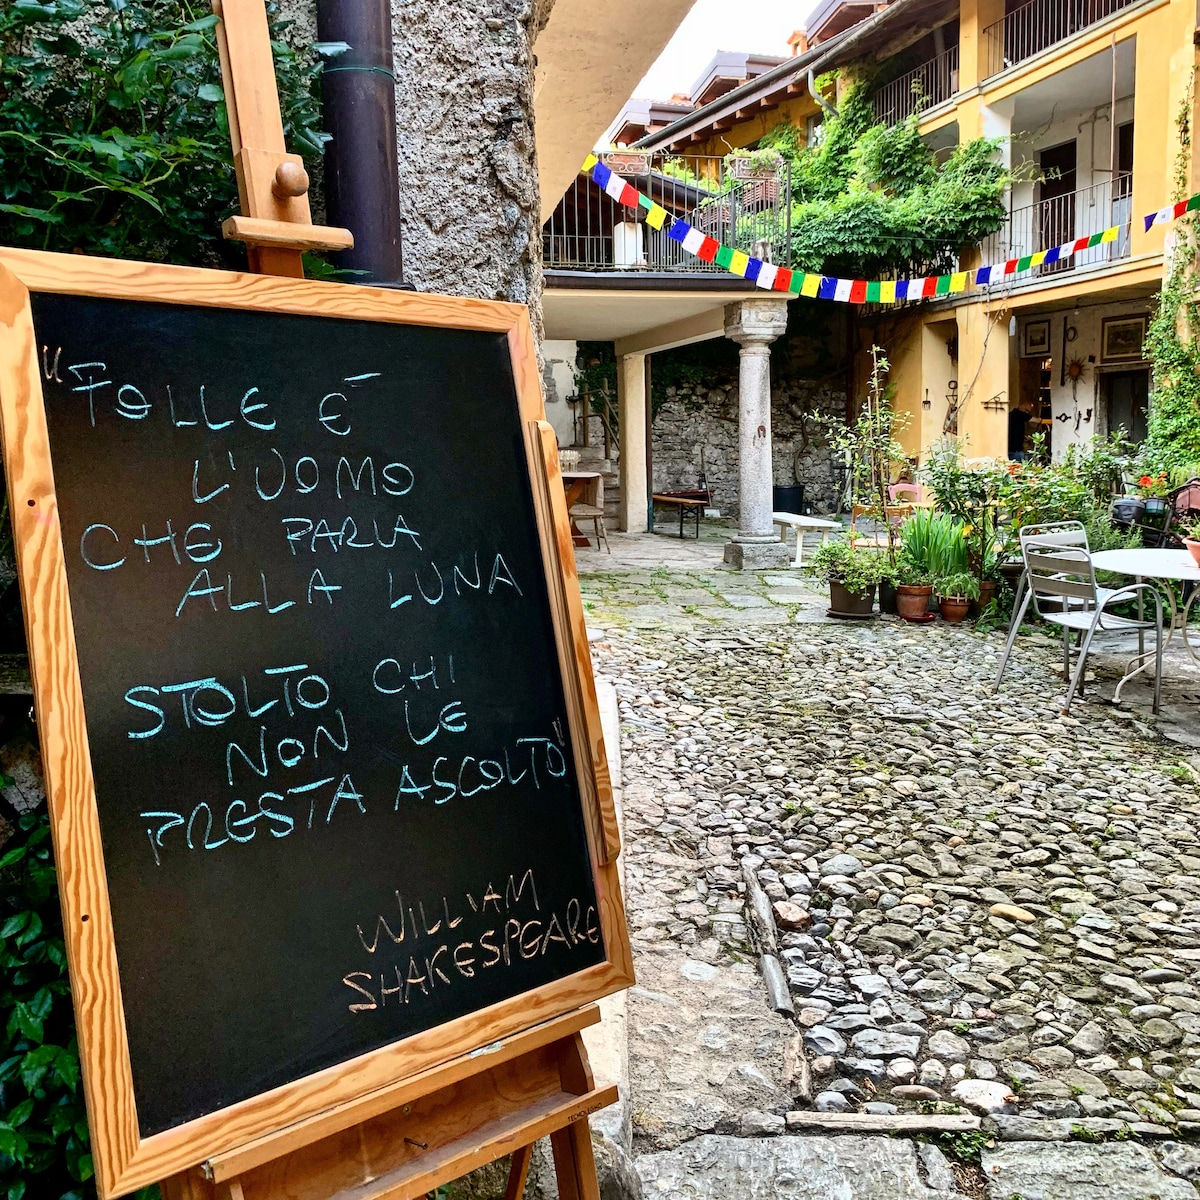 "FOLLE È
L'UOMO
CHE PARLA
ALLA LUNA
STOLTO CHI
NON LE
PRESTA ASCOLTO"
WILLIAM
SHAKESPEARE